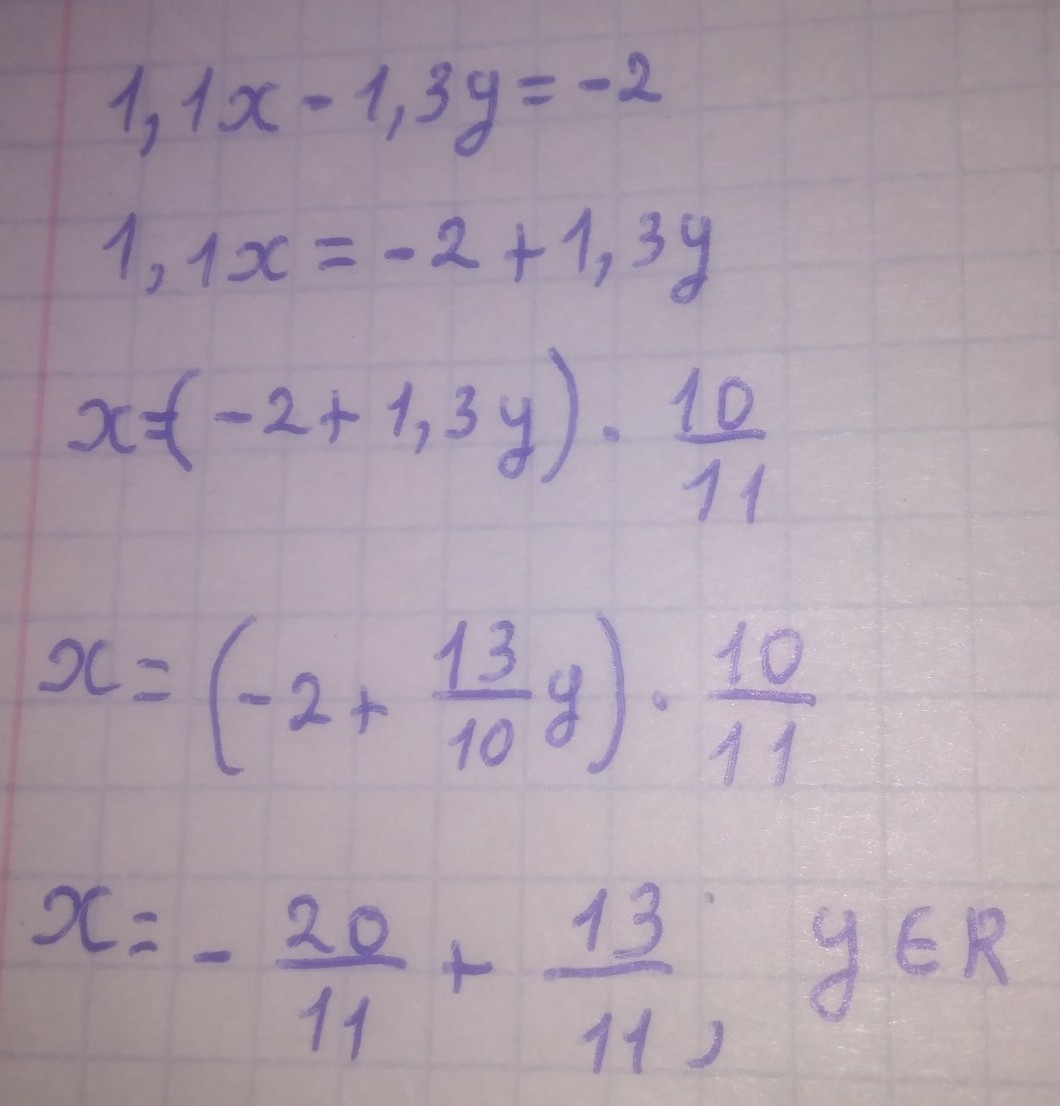 1,1x - 1,3y = -2
1,1x = -2 + 1,3y
x = (-2 + 1,3y) · 10/11
x = (-2 + 13/10 y) · 10/11
x = - 20/11 + 13/11, y ∈ R